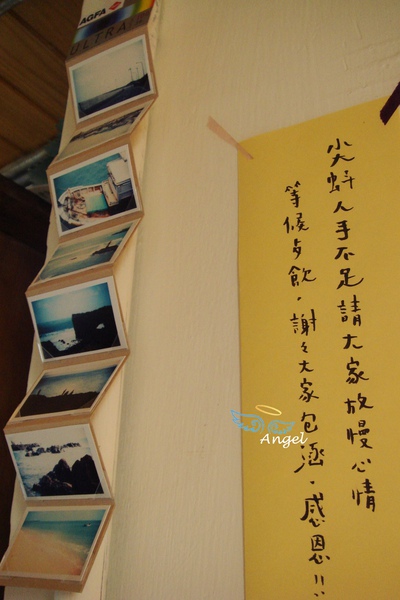 AGFA
ULTRA
尖蚪人手不足請大家放慢心情
等候歺飲，謝々大家包涵，感恩!!
Angel